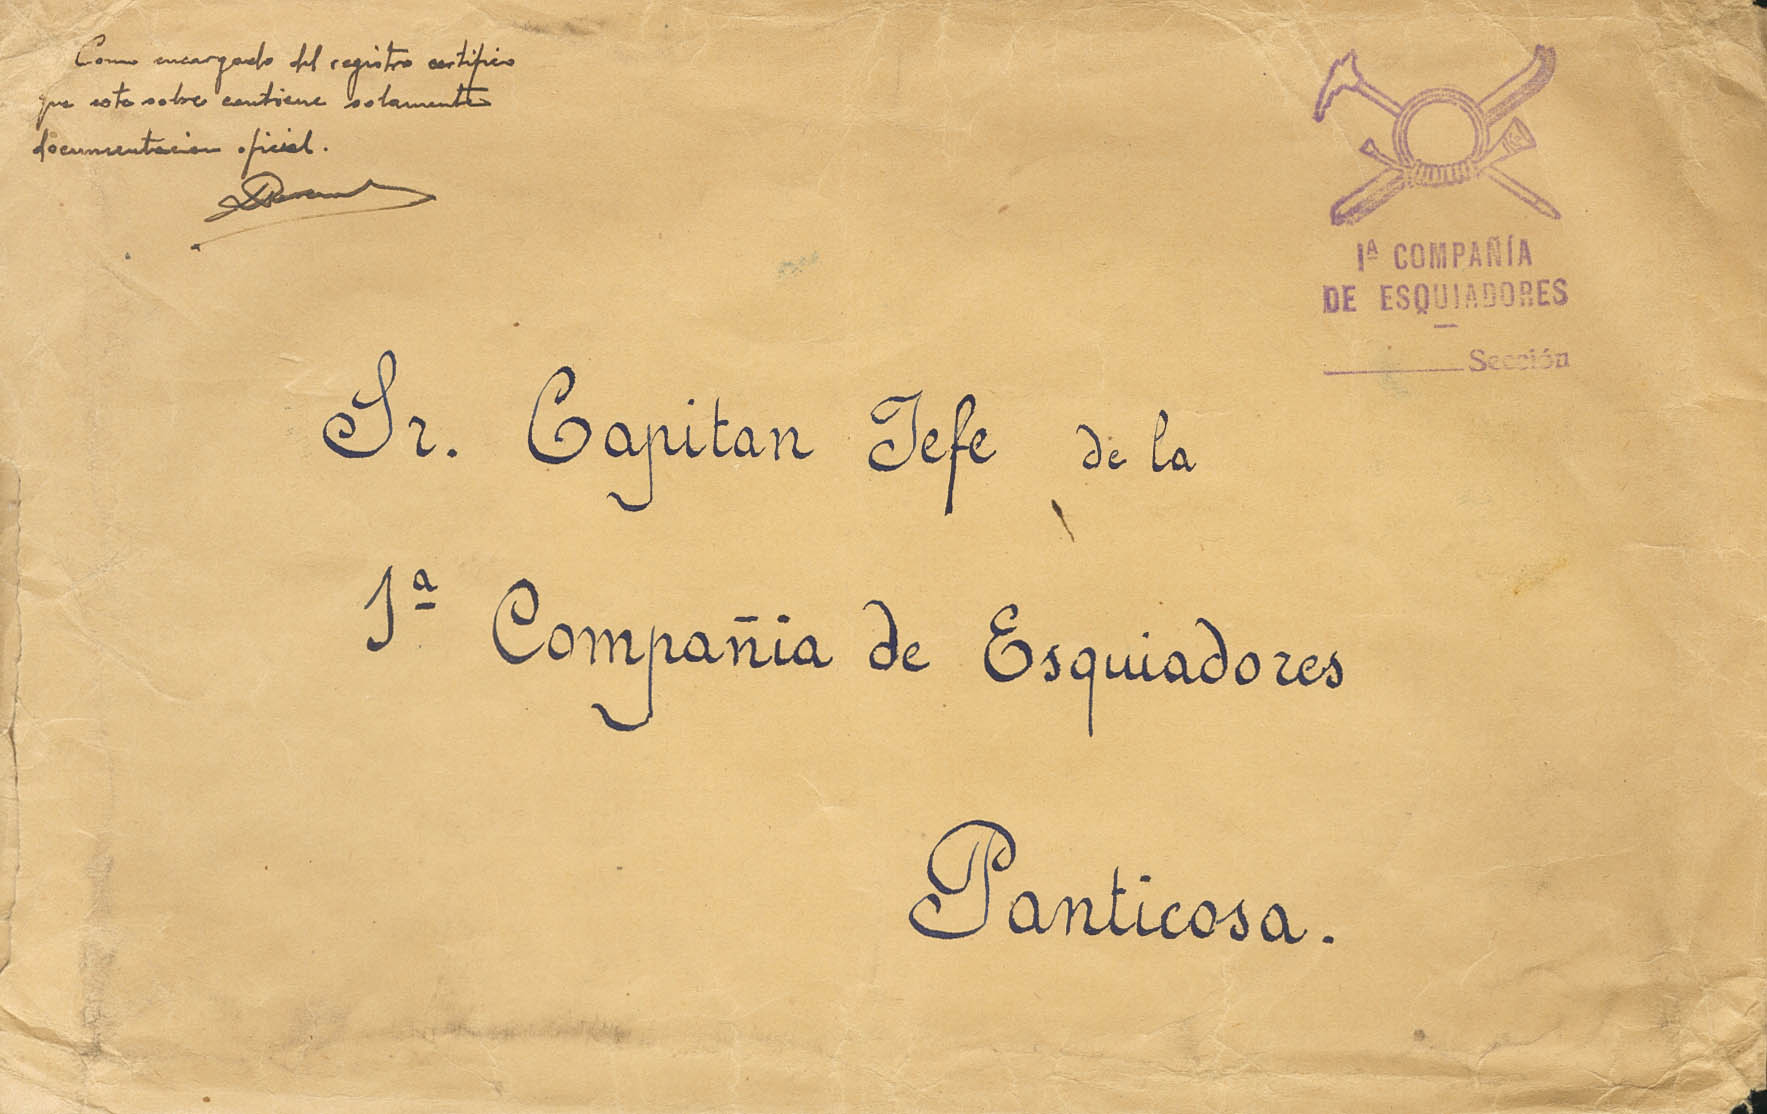 Como encargado del registro certifico
que este sobre contiene solamente
documentacion oficial.
1ª COMPAÑÍA
DE ESQUIADORES
Sección
Sr. Capitan Jefe de la
1ª Compañia de Esquiadores
Panticosa.